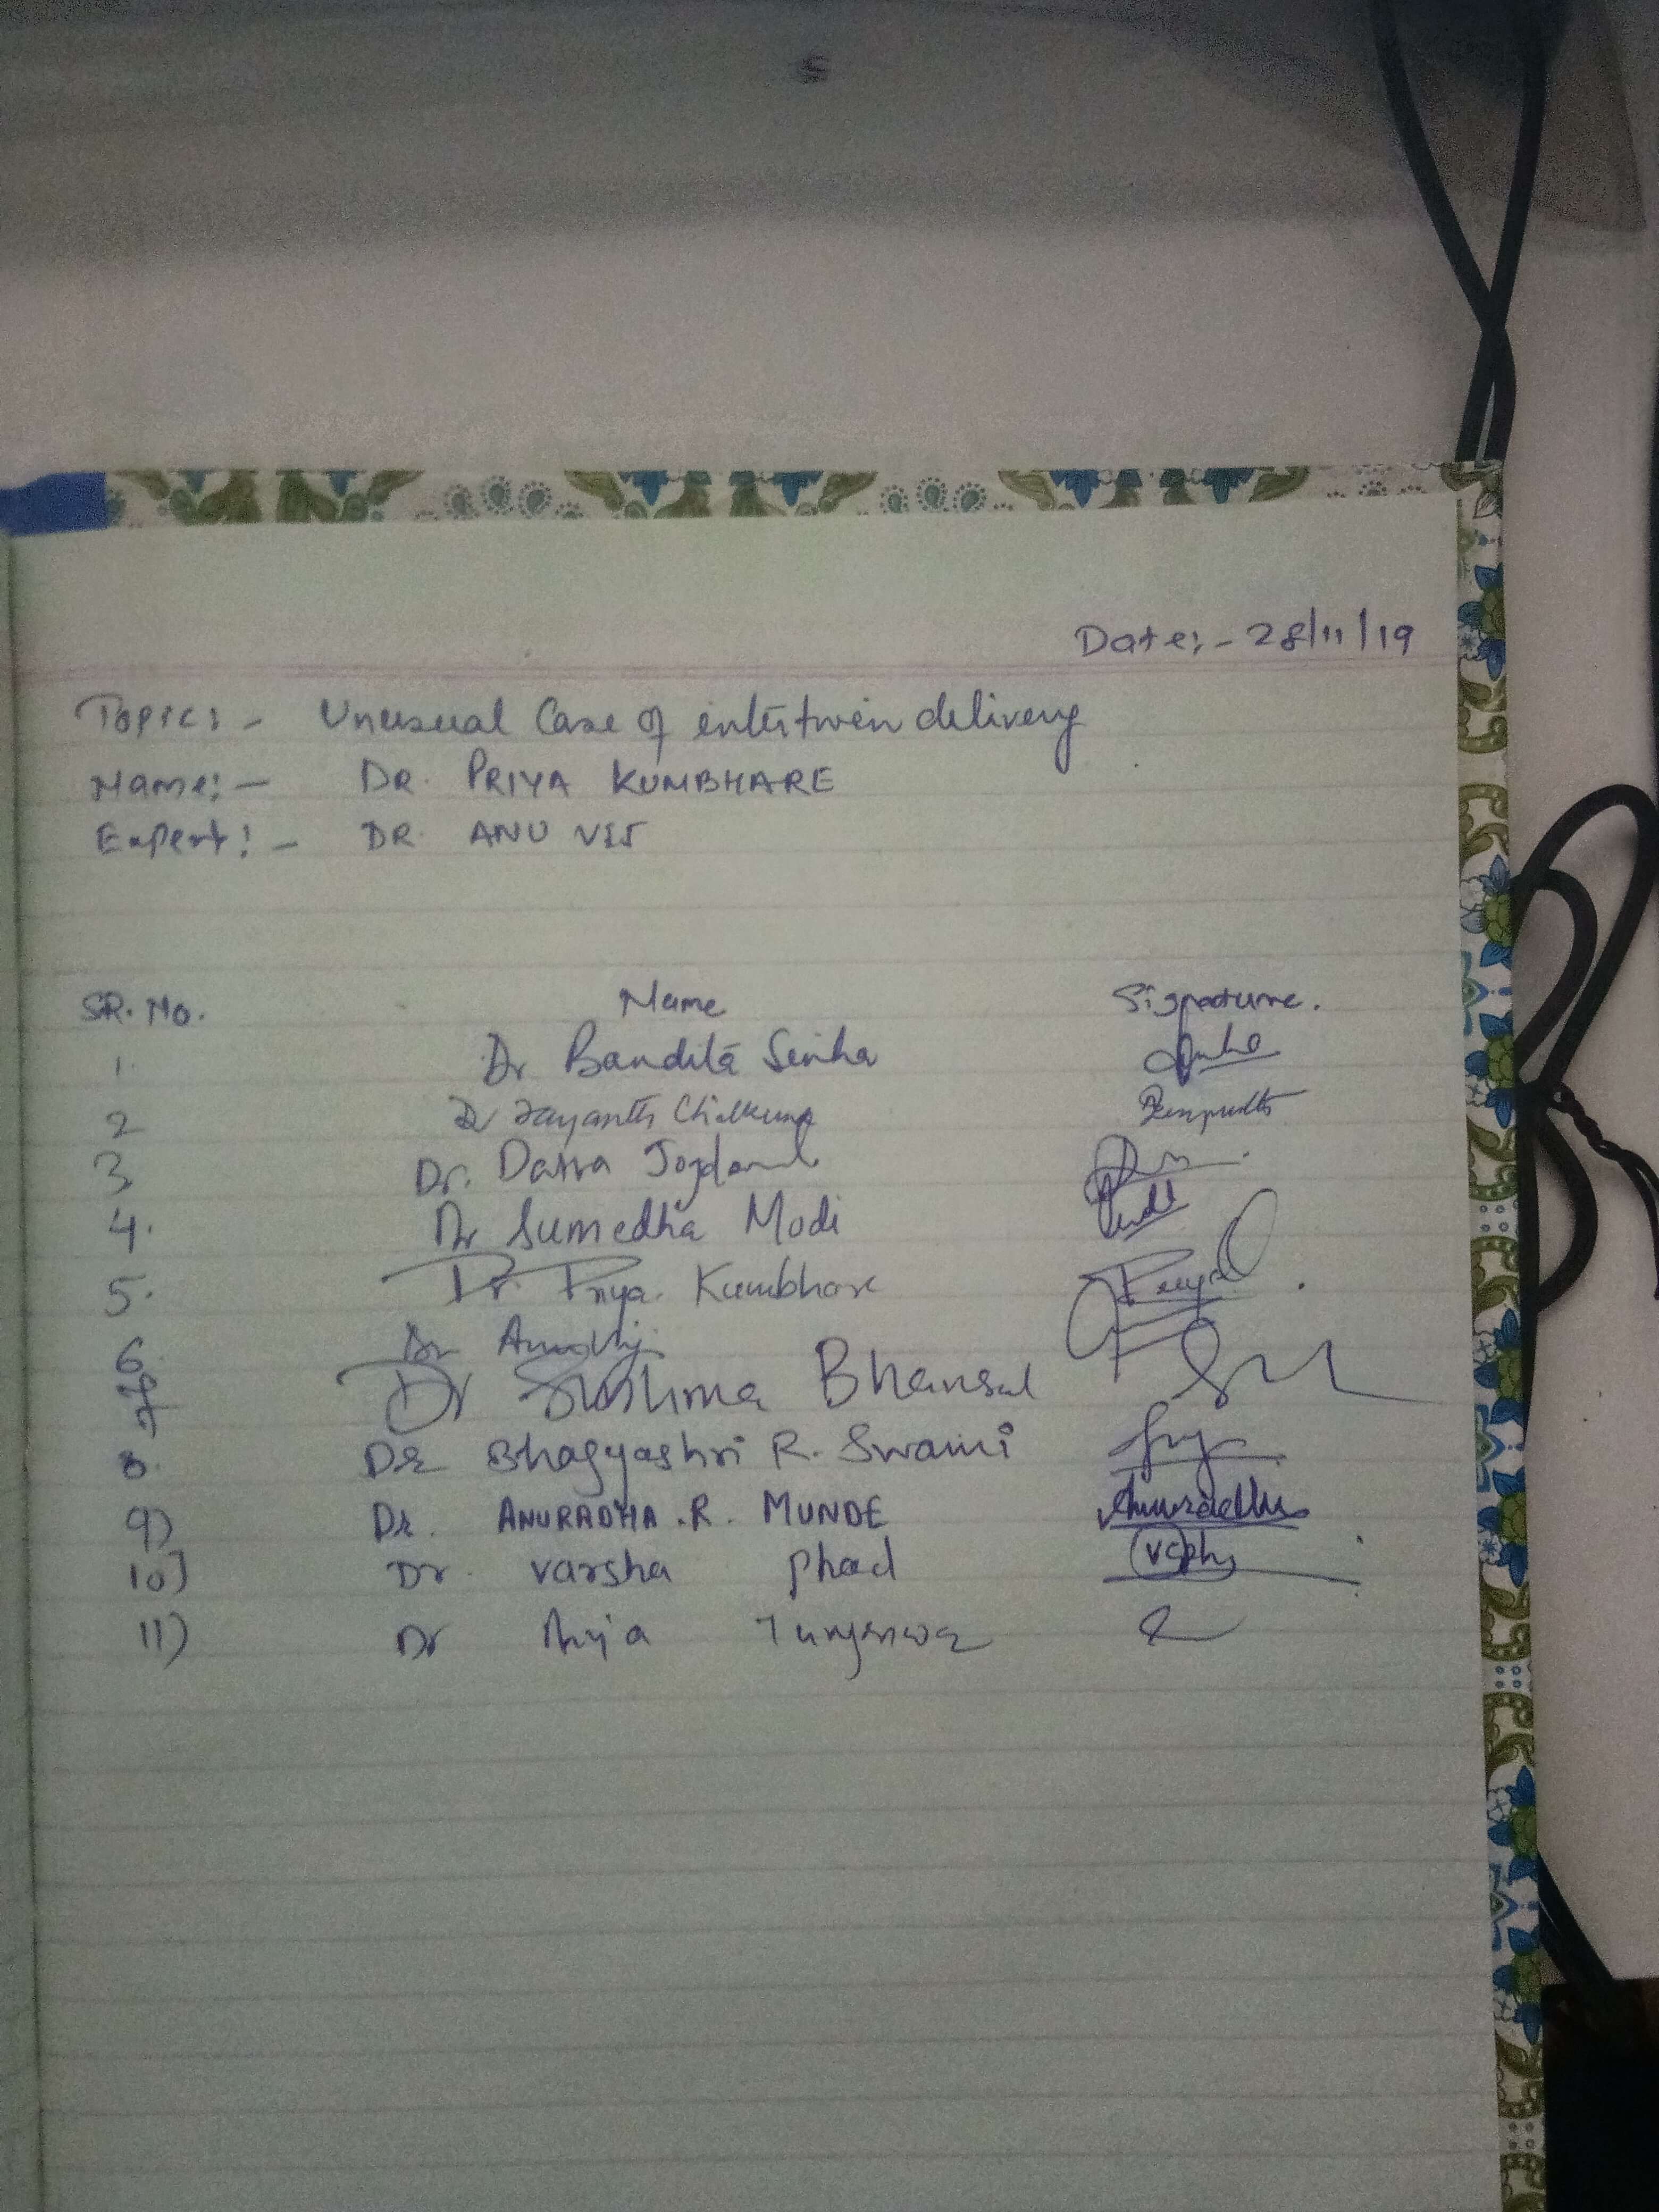 Date:- 28/11/19
Topic:- Unusual Case of intertwin delivery
Name:- DR. PRIYA KUMBHARE
Expert:- DR. ANU VIJ
SR. No. Name Signature.
1. Dr Bandita Sinha
2 Dr Jayanth
3 Dr. Datta
4. Dr Sumedha Modi
5. Dr. Priya. Kumbhare Priya
6. Dr Anu Vij
7 Dr Sushma Bhansal
8. Dr Bhagyashri R. Swami
9) Dr. ANURADHA .R. MUNDE Anuradha
10) Dr. varsha phad
11) Dr